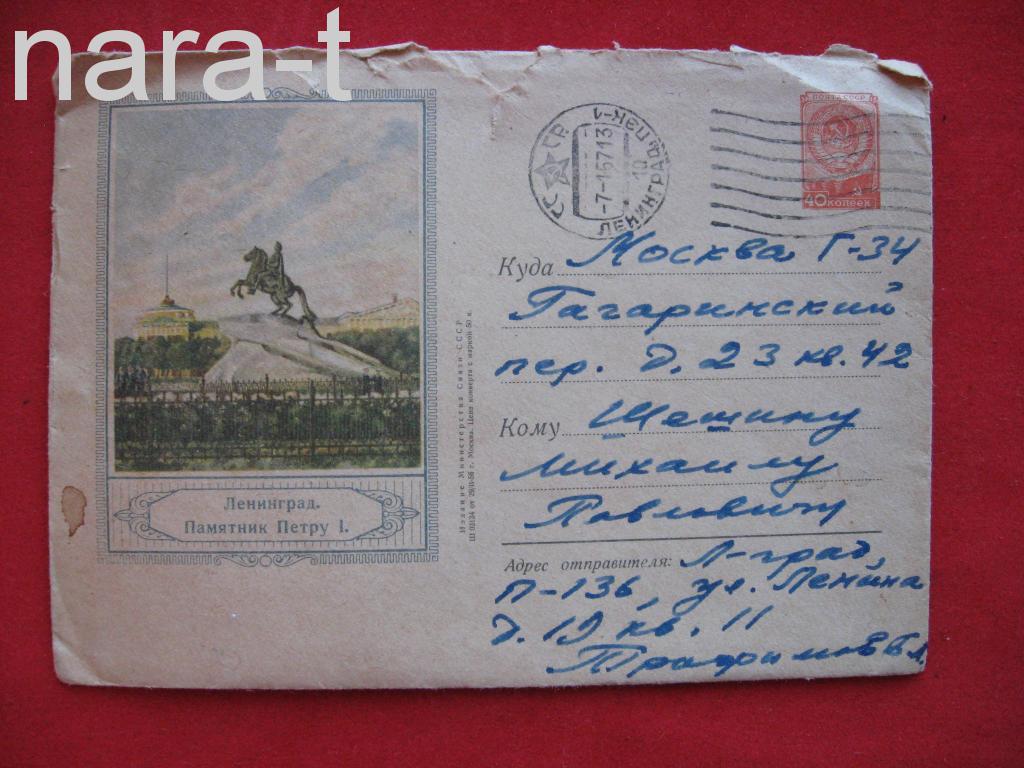 nara-t
ПОЧТА СССР
40 КОПЕЕК
СССР
ЛЕНИНГРАД
-7-1 57 13
10
Куда Москва Г-34
Гагаринский
пер. д. 23 кв. 42
Кому Шешину
Михаилу
Павловичу
Адрес отправителя: Л-град,
П-136, ул. Ленина
д. 19 кв. 11
Издание Министерства Связи СССР
г. Москва. Цена конверта с маркой 50 к.
Ленинград.
Памятник Петру I.